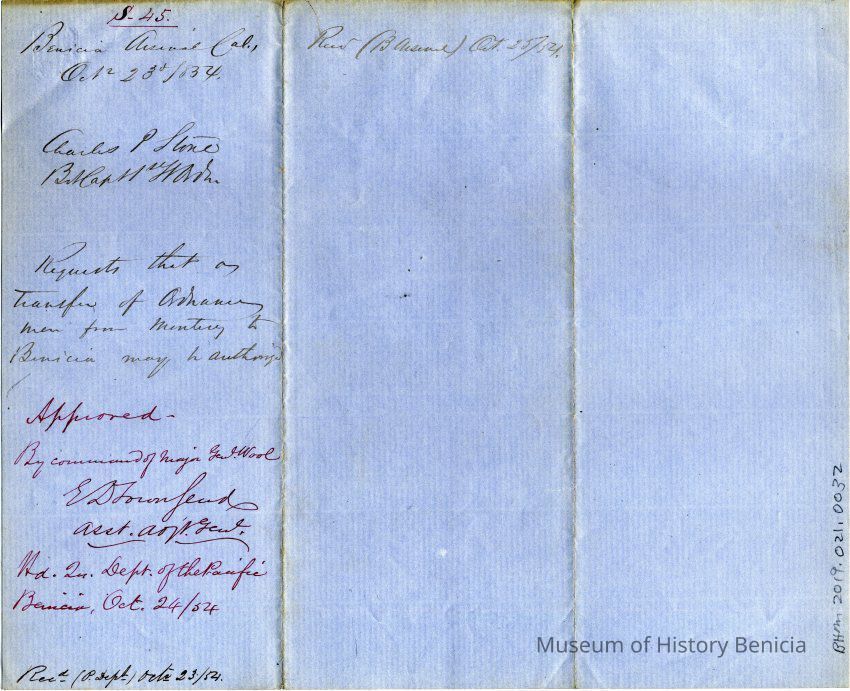 S. 45.
Benicia Arsenal Cala,
Octr 23d/54.
Charles P Stone
Bt Capt 1st Lt Ordn.
Requests that a
transfer of Ordnance
men from Monterey to
Benicia may be authorized
Approved -
By command of Major Genl. Wool
E D Townsend
Asst. Adjt. Genl.
Hd. Qrs. Dept. of the Pacific
Benicia, Oct. 24/54
Recd. (P. Dept.) Octr 23/54.
Recd (B Arsenal) Oct. 25/54.
BHM. 2019.021.0032
Museum of History Benicia